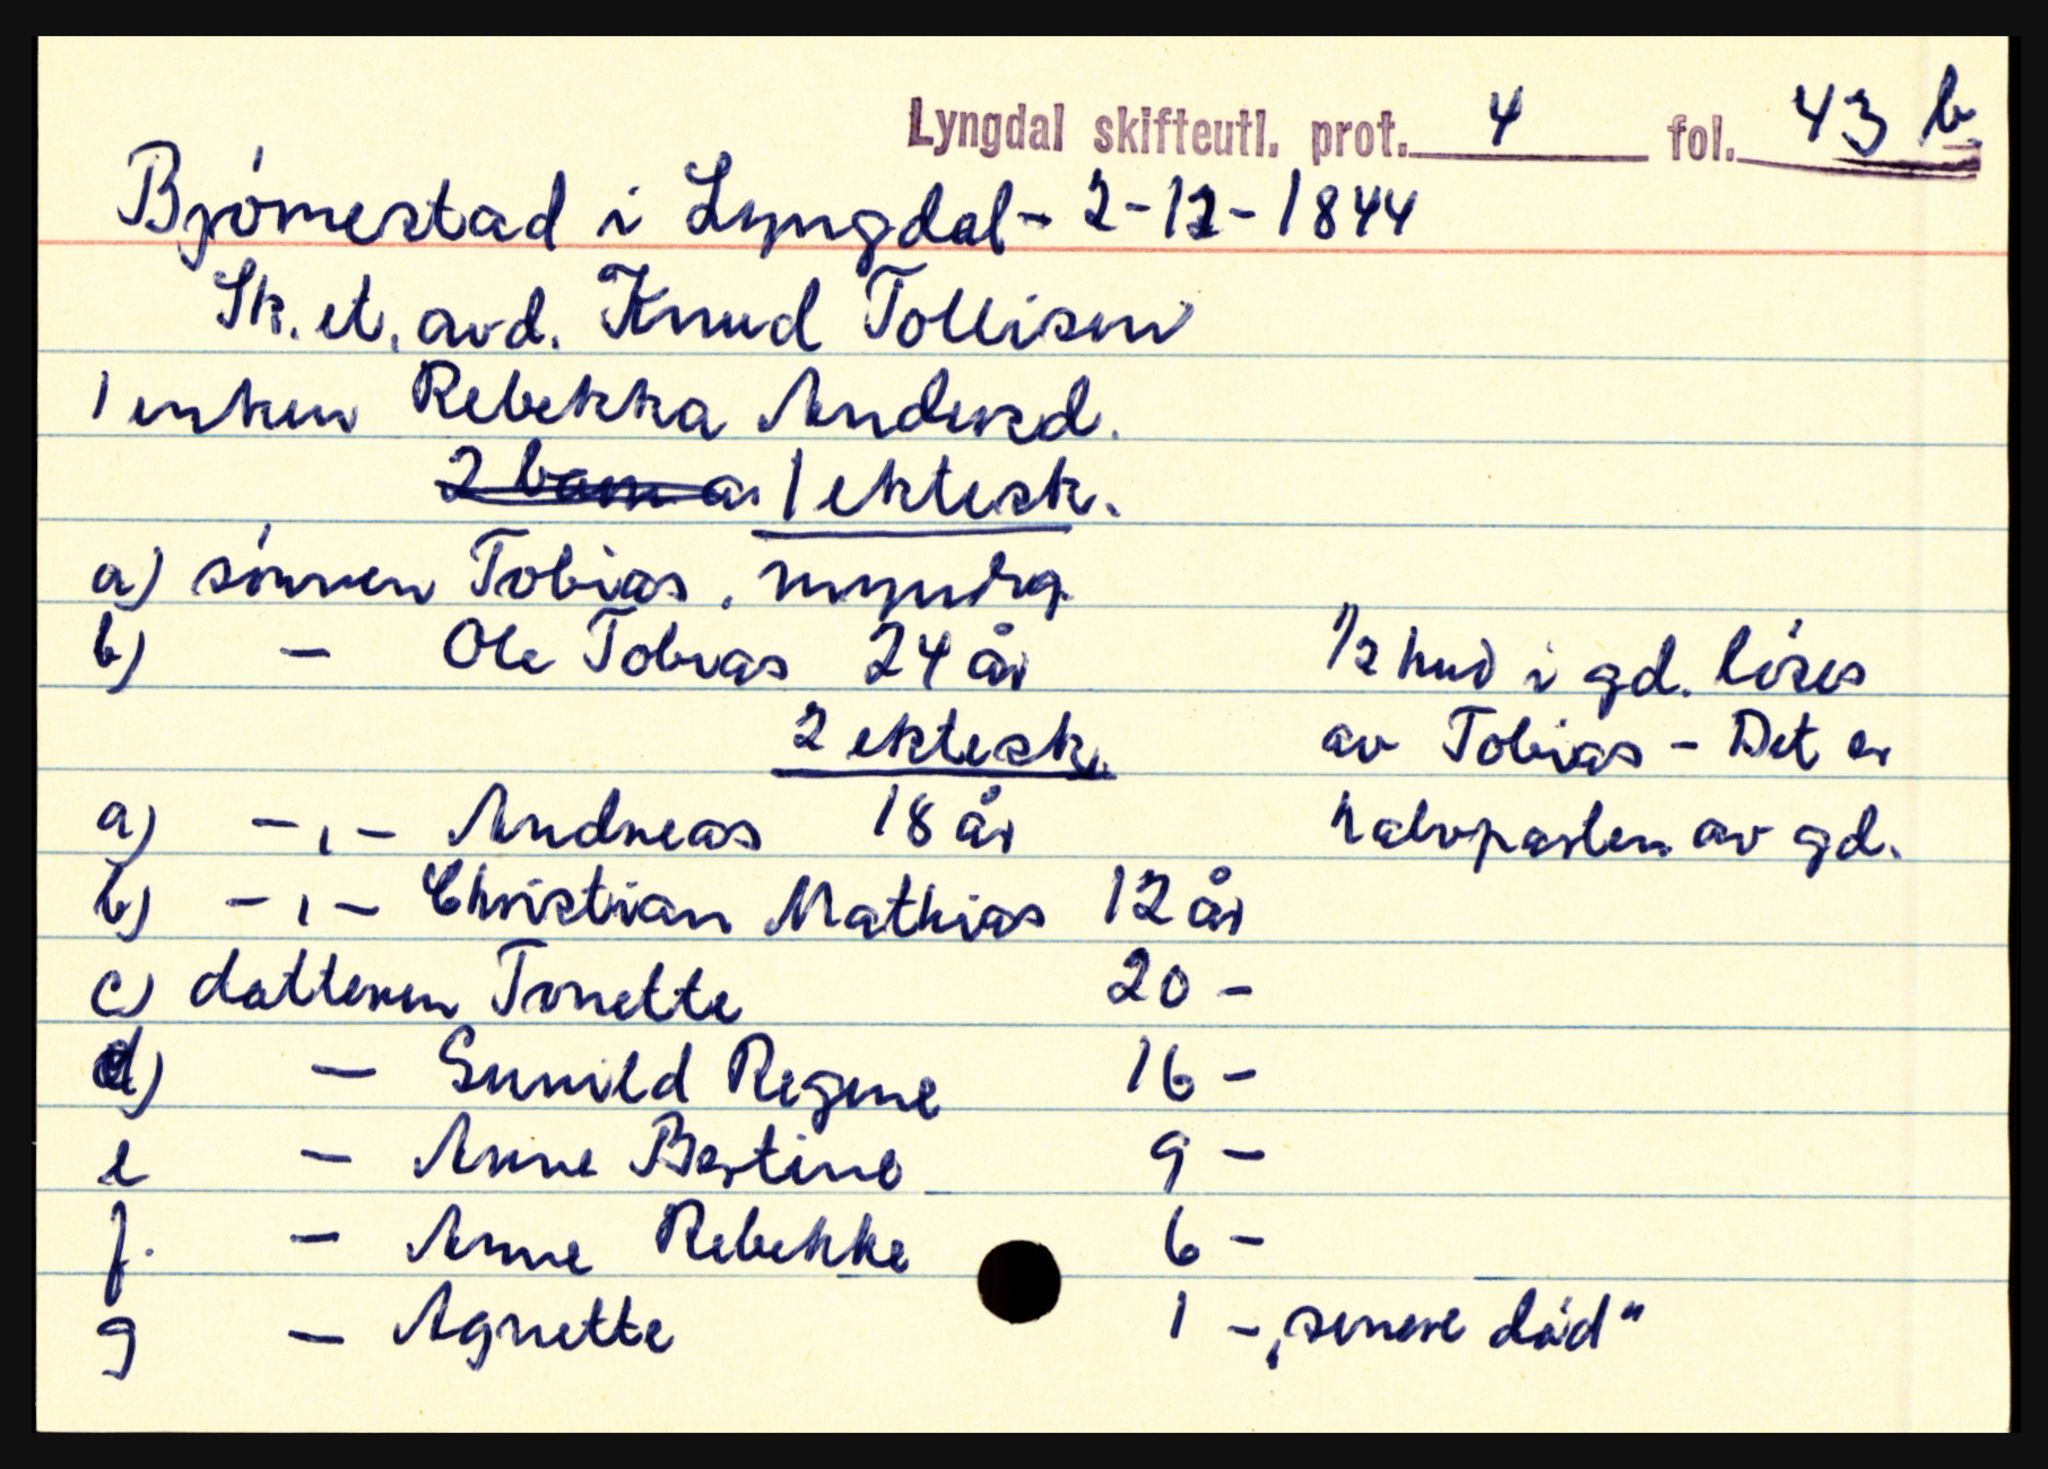 Lyngdal skifteutl. prot. 4 fol. 43 b.
Bjørnestad i Lyngdal - 2-12-1844
Sk. et. avd. Knud Tollisen
1 enken Rebekka Andersd.
2 barn a. 1 ektesk.
a) sønnen Tobias, myndig.
b) - Ole Tobias 24 år
1/2 hud i gd. løses
2 ektesk.
av Tobias - Det er
a) -,- Andreas 18 år
halvparten av gd.
b) -,- Christian Mathias 12 år
c) datteren Tonette 20 -
d) - Gunild Regine 16 -
e - Anne Bertine 9 -
f. - Anne Rebekke 6 -
g - Agnette 1 - „senere død"